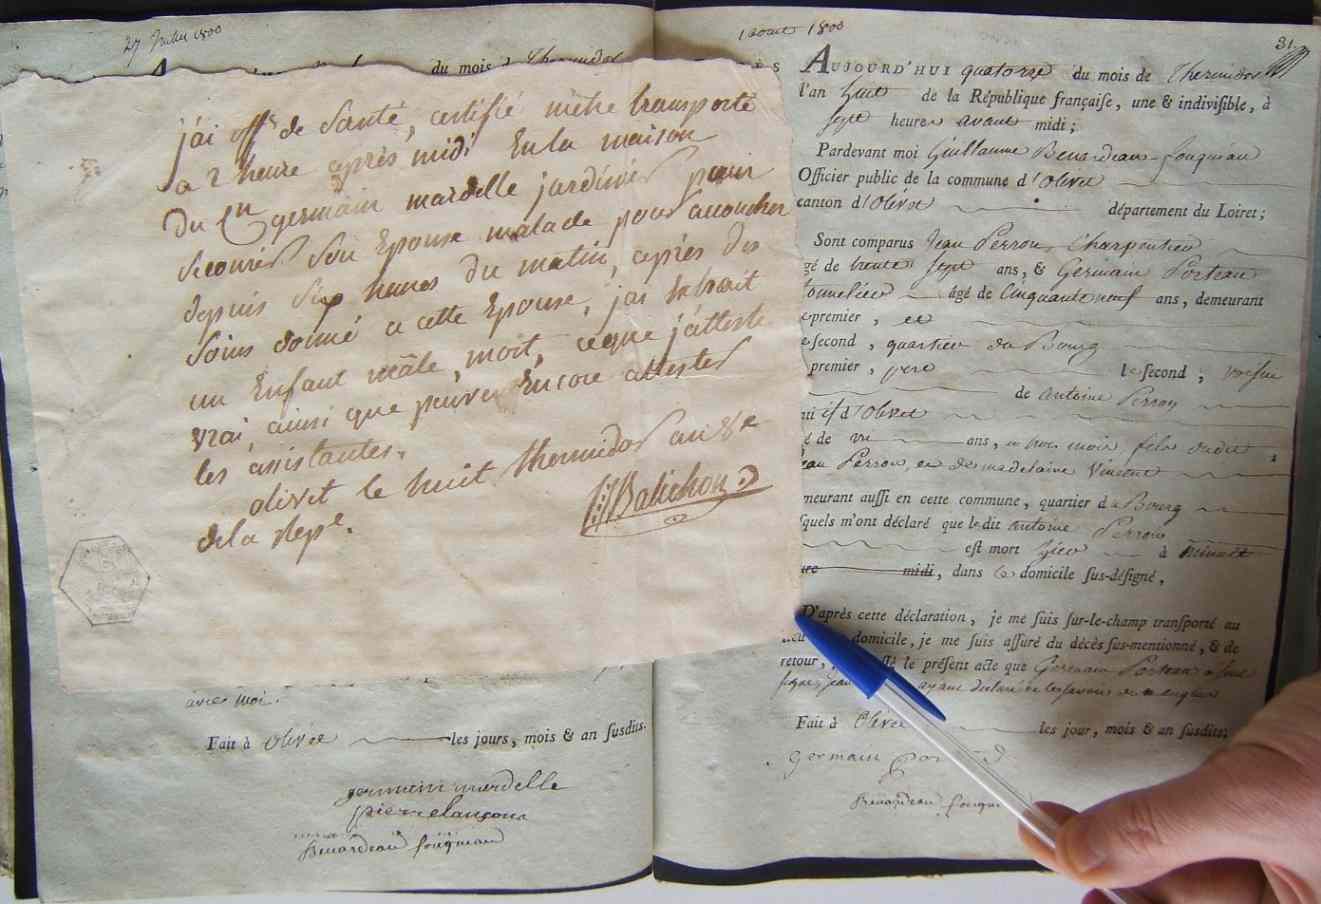 27 Juillet 1800
du mois d Thermidor
j'ai off. de Santé, certifié mètre transporté
a 2 heure après midi En la maison
Du Cn germain mardelle jardinier pour
secourir Son Epouse malade pour accoucher
depuis Six heures du matin, après des
soins donné a cette Epouse, j'ai Extrait
un Enfant mâle, mort, ceque j'atteste
vrai, ainsi que peuvent Encore attester
les assistantes.
olivet le huit thermidor an 8e
de la Rep.
Balichon
avec moi.
Fait à Olivet les jours, mois & an susdits.
germain mardelle
pierre lançon
Benardeau fouqueau
1 aout 1800
31.
AUJOURD'HUI quatorze du mois de Thermidor
l'an huit de la République française, une & indivisible, à
sept heures avant midi ;
Pardevant moi Guillaume Benardeau-fouqueau
Officier public de la commune d'Olivet
canton d'Olivet département du Loiret ;
Sont comparus Jean Perron, Charpentier
gé de trente sept ans, & Germain Porteau
tonnelier âgé de Cinquante neuf ans, demeurant
premier, et
second, quartier du Bourg
premier, pere le second ; voisin
de Antoine Perron
d'Olivet
é de un ans, fils dudit
Jean Perron, et de madelaine Vincent
meurant aussi en cette commune, quartier du Bourg
squels m'ont déclaré que le dit antoine Perron
est mort hier à minuit
midi, dans le domicile sus-désigné,
D'après cette déclaration, je me suis sur-le-champ transporté au
domicile, je me suis assuré du décès sus-mentionné, & de
retour, le présent acte que Germain Porteau a seul
signé, ayant déclaré ne le savoir de ce enquis
Fait à Olivet les jour, mois & an susdits.
germain
Benardeau fouqu